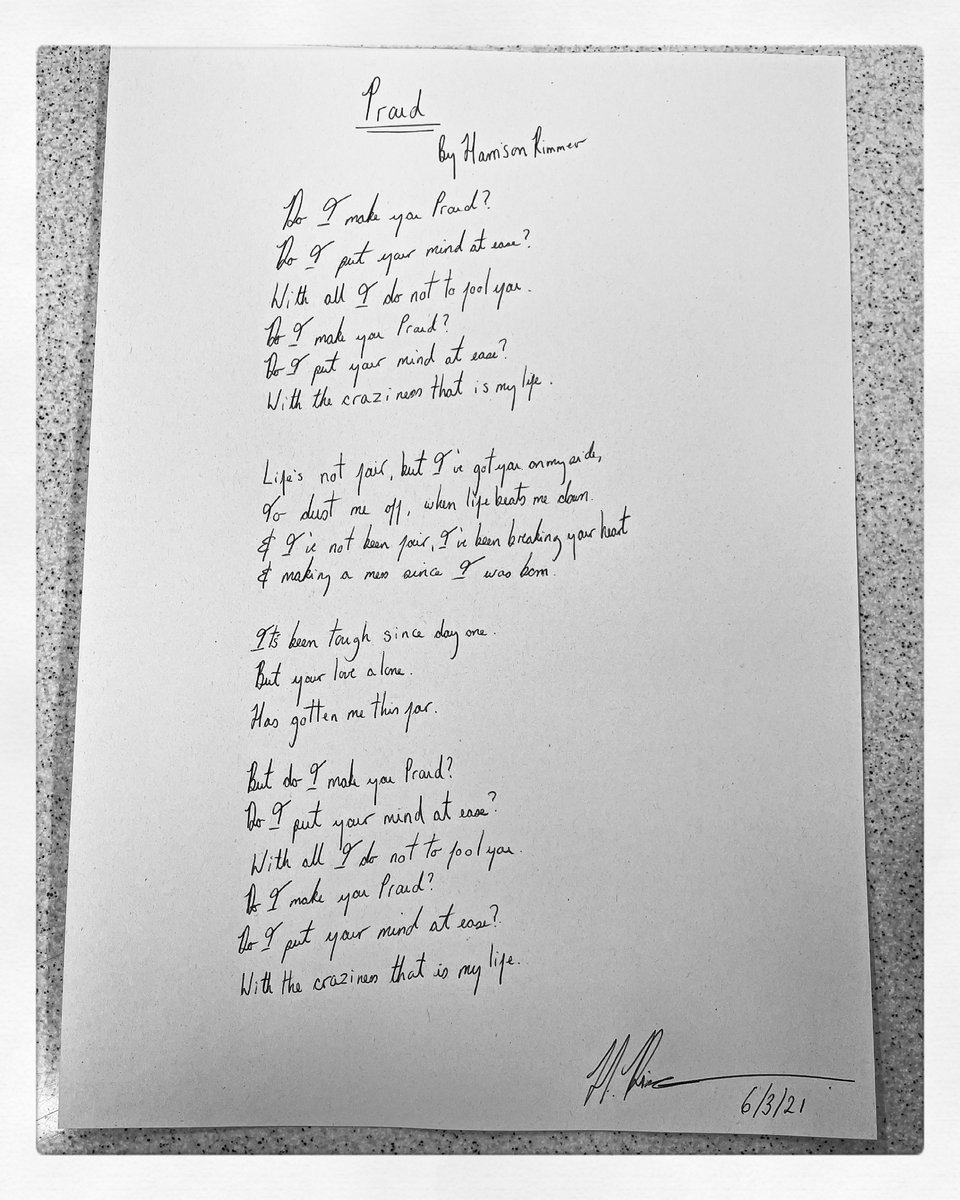 Proud
By Harrison Rimmer
Do I make you Proud?
Do I put your mind at ease?
With all I do not to fool you.
Do I make you Proud?
Do I put your mind at ease?
With the craziness that is my life.
Life's not fair, but I've got you on my side,
To dust me off, when life beats me down.
& I've not been fair, I've been breaking your heart
& making a mess since I was born.
Its been tough since day one.
But your love alone.
Has gotten me this far.
But do I make you Proud?
Do I put your mind at ease?
With all I do not to fool you.
Do I make you Proud?
Do I put your mind at ease?
With the craziness that is my life.
H. Rim
6/3/21